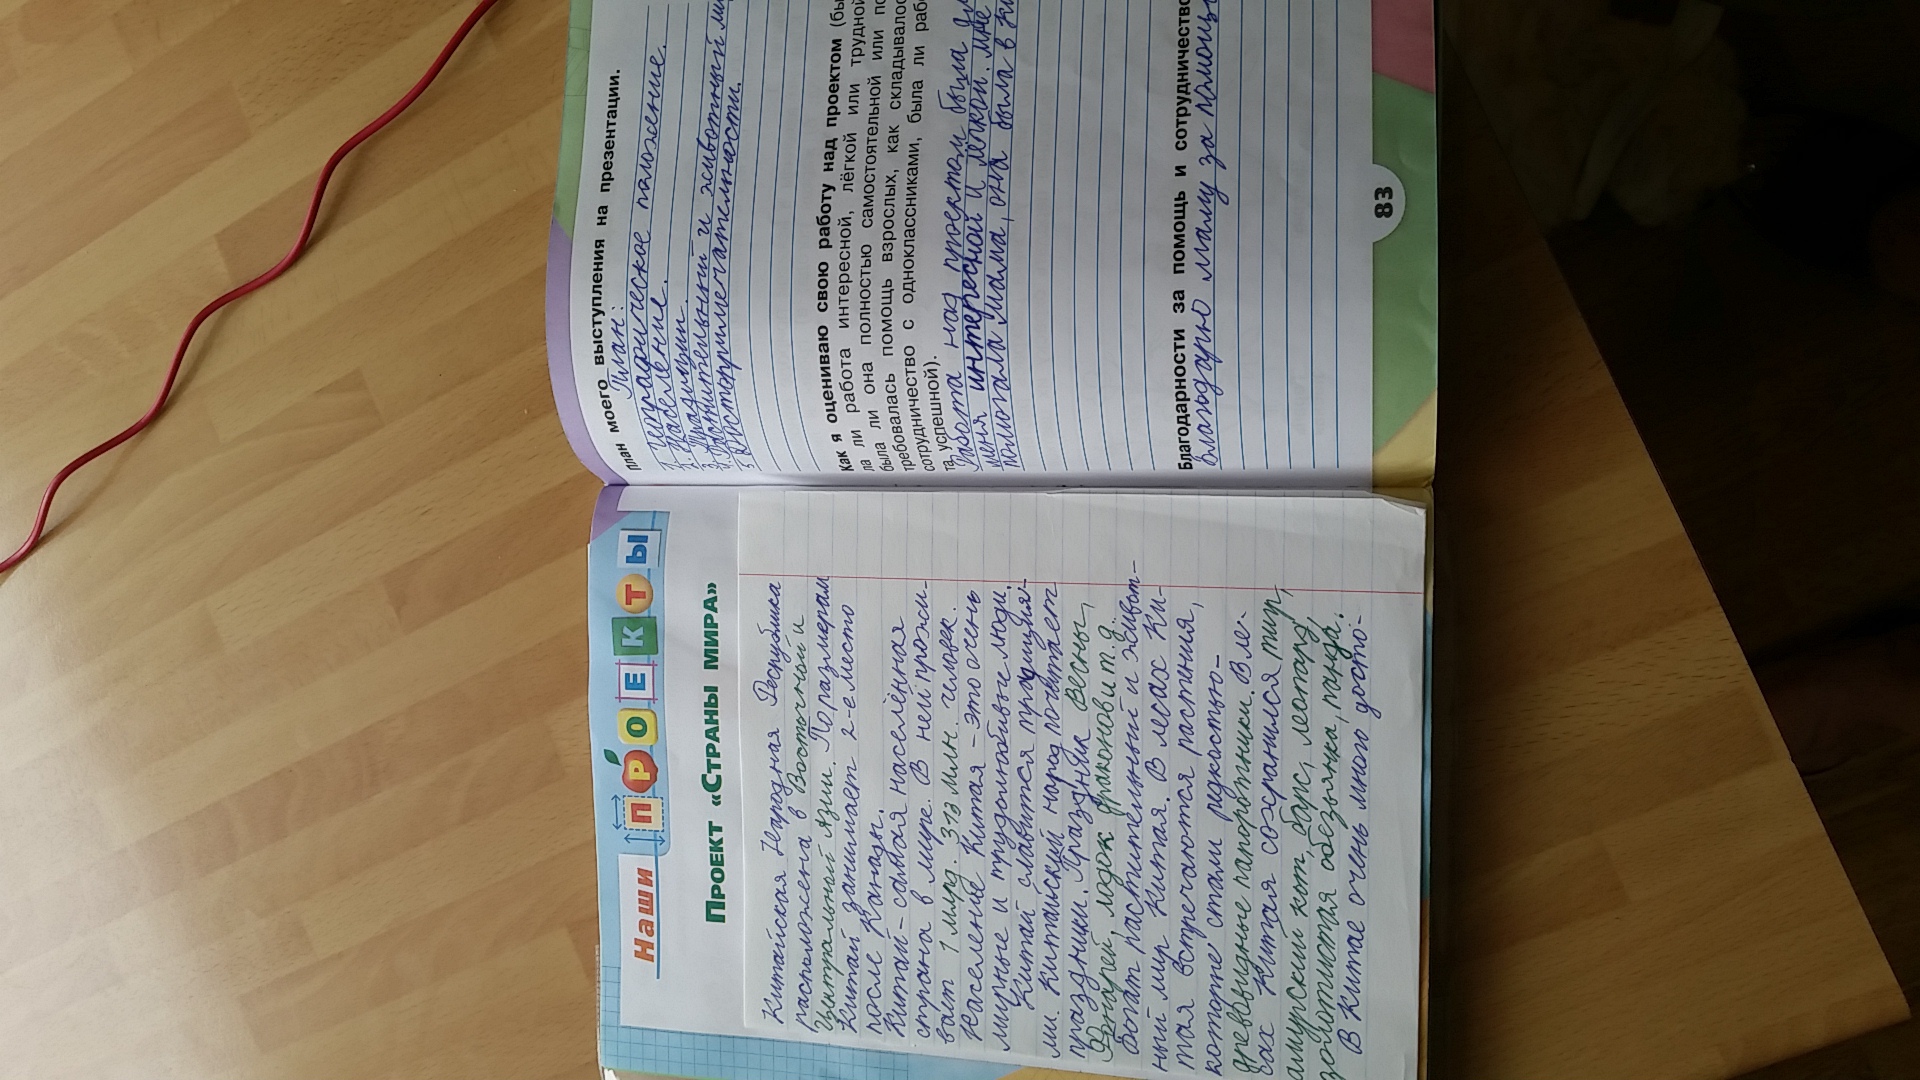 Наши ПРОЕКТЫ
ПРОЕКТ «СТРАНЫ МИРА»
Китайская Народная Республика
расположена в Восточной и
Центральной Азии. По размерам
Китай занимает 2-е место
после Канады.
Китай – самая населённая
страна в мире. В ней прожи-
вает 1 млрд. 313 млн. человек.
Население Китая – это очень
мирные и трудолюбивые люди.
Китай славится традиция-
ми. Китайский народ почитает
праздники. Праздник Весны,
Фонарей, лодок драконов и т.д..
Богат растительный и живот-
ный мир Китая. В лесах Ки-
тая встречаются растения,
которые стали редкостью-
древовидные папоротники. В ле-
сах Китая сохранился тигр,
амурский кот, барс, леопард,
золотистая обезьянка, панда.
В Китае очень много досто-
План моего выступления на презентации.
План:
1. Географическое положение.
2. Население.
3. Традиции.
4. Растительный и животный ми
5. Достопримечательности.
Как я оцениваю свою работу над проектом (бы
ла ли работа интересной, лёгкой или трудной
была ли она полностью самостоятельной или по
требовалась помощь взрослых, как складывалос
сотрудничество с одноклассниками, была ли рабо
та успешной).
Работа над проектом была дл
меня интересной и лёгкой. мне
помогала мама, она была в Ки
Благодарности за помощь и сотрудничество
Благодарю маму за помощь
83